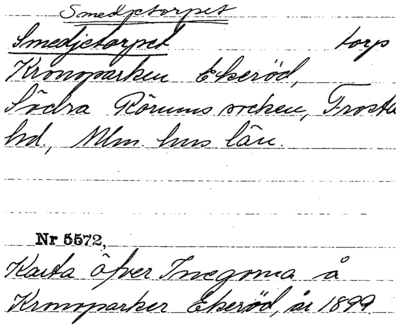 Smedjetorpet
Smedjetorpet torp
Kronoparken Ekeröd,
Södra Rörums socken, Frosta
hd., Mlm. hus län.
Nr 5572,
Karta öfver Inegorna å
Kronoparken Ekeröd, år 1899.